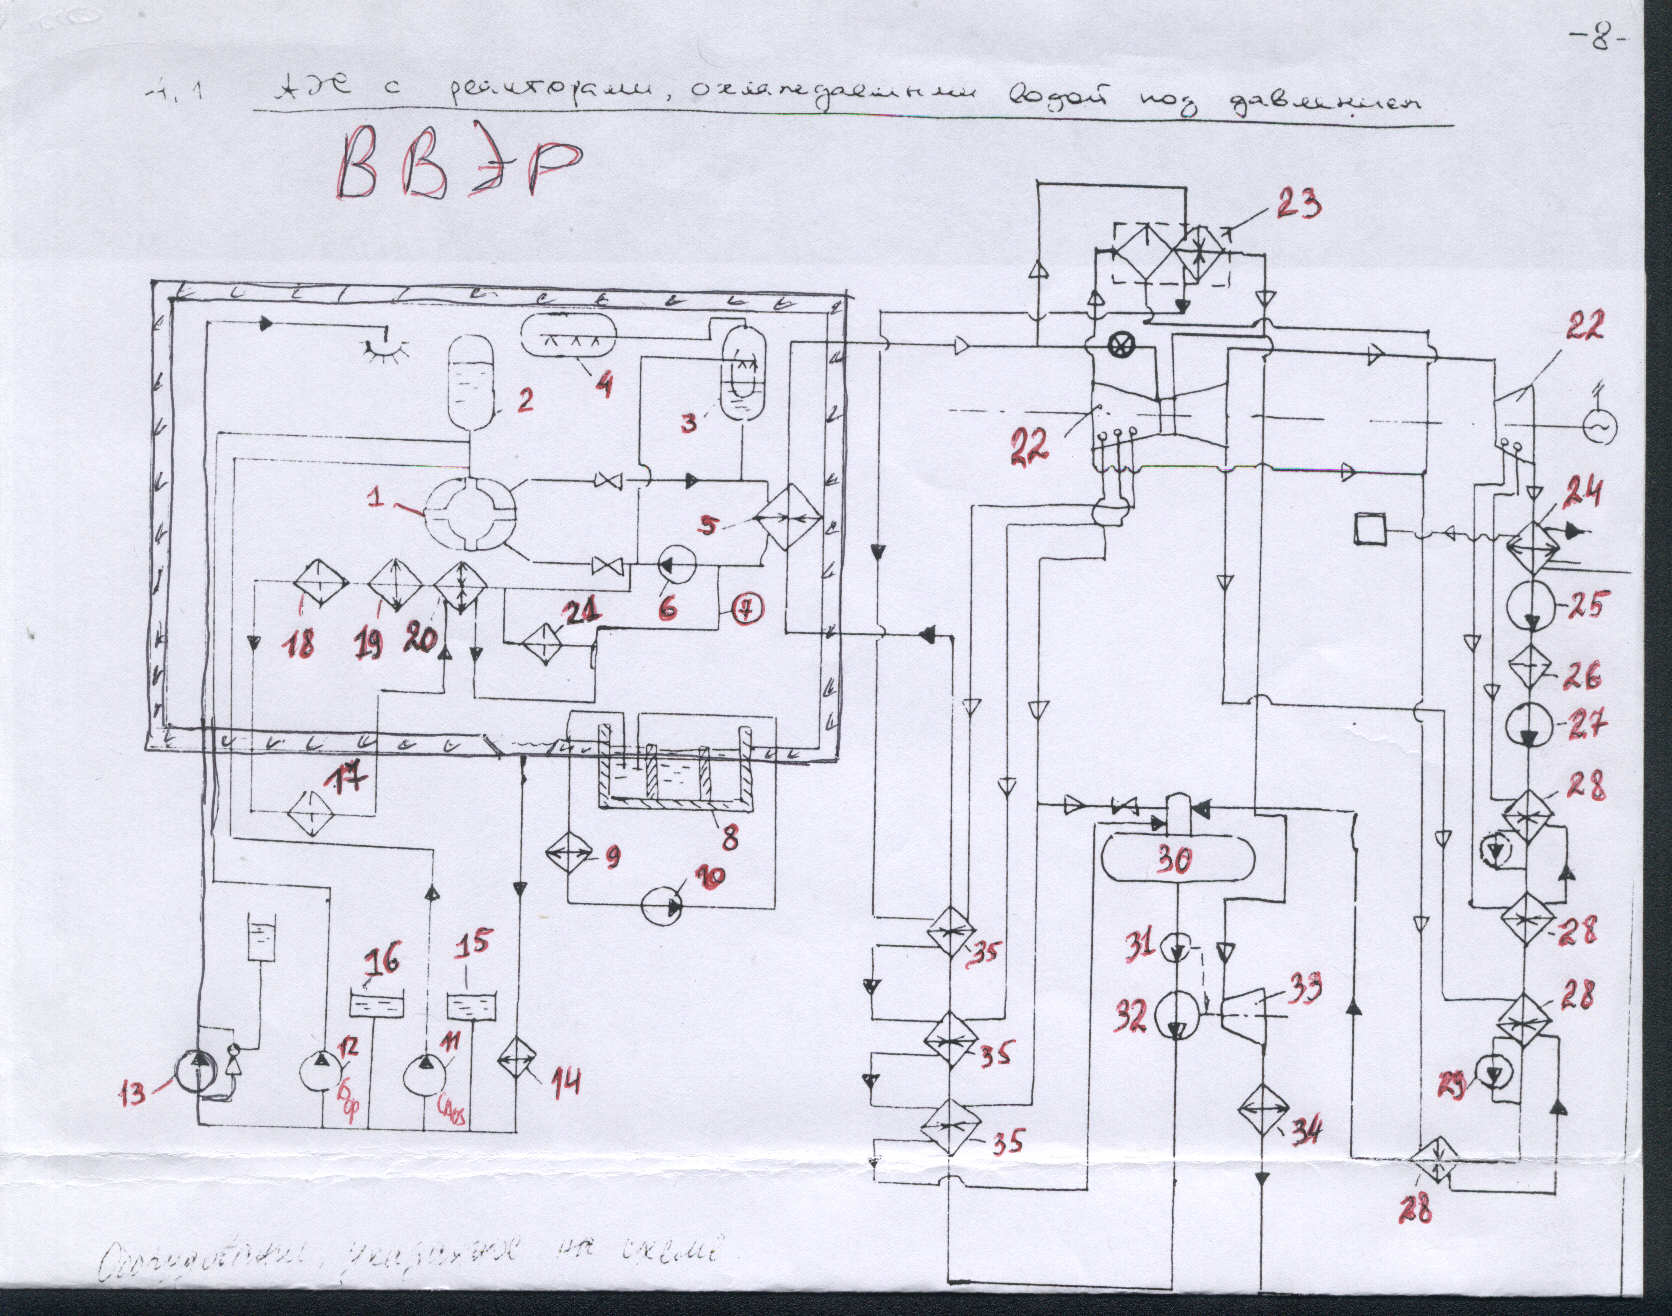 -8-
4.1 АЭС с реакторами, охлаждаемыми водой под давлением
ВВЭР
23
22
4
2
3
22
24
1
5
25
6
7
21
18
19
20
26
27
17
28
8
9
30
10
28
35
31
16
15
28
33
32
12
11
35
29
13
Бор
14
35
34
28
Оборудование, указанное на схеме